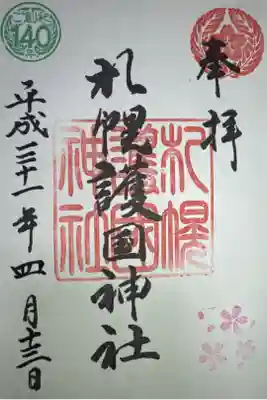 奉拝
札幌護国神社
平成三十一年四月十三日
140
札幌
護國
神社